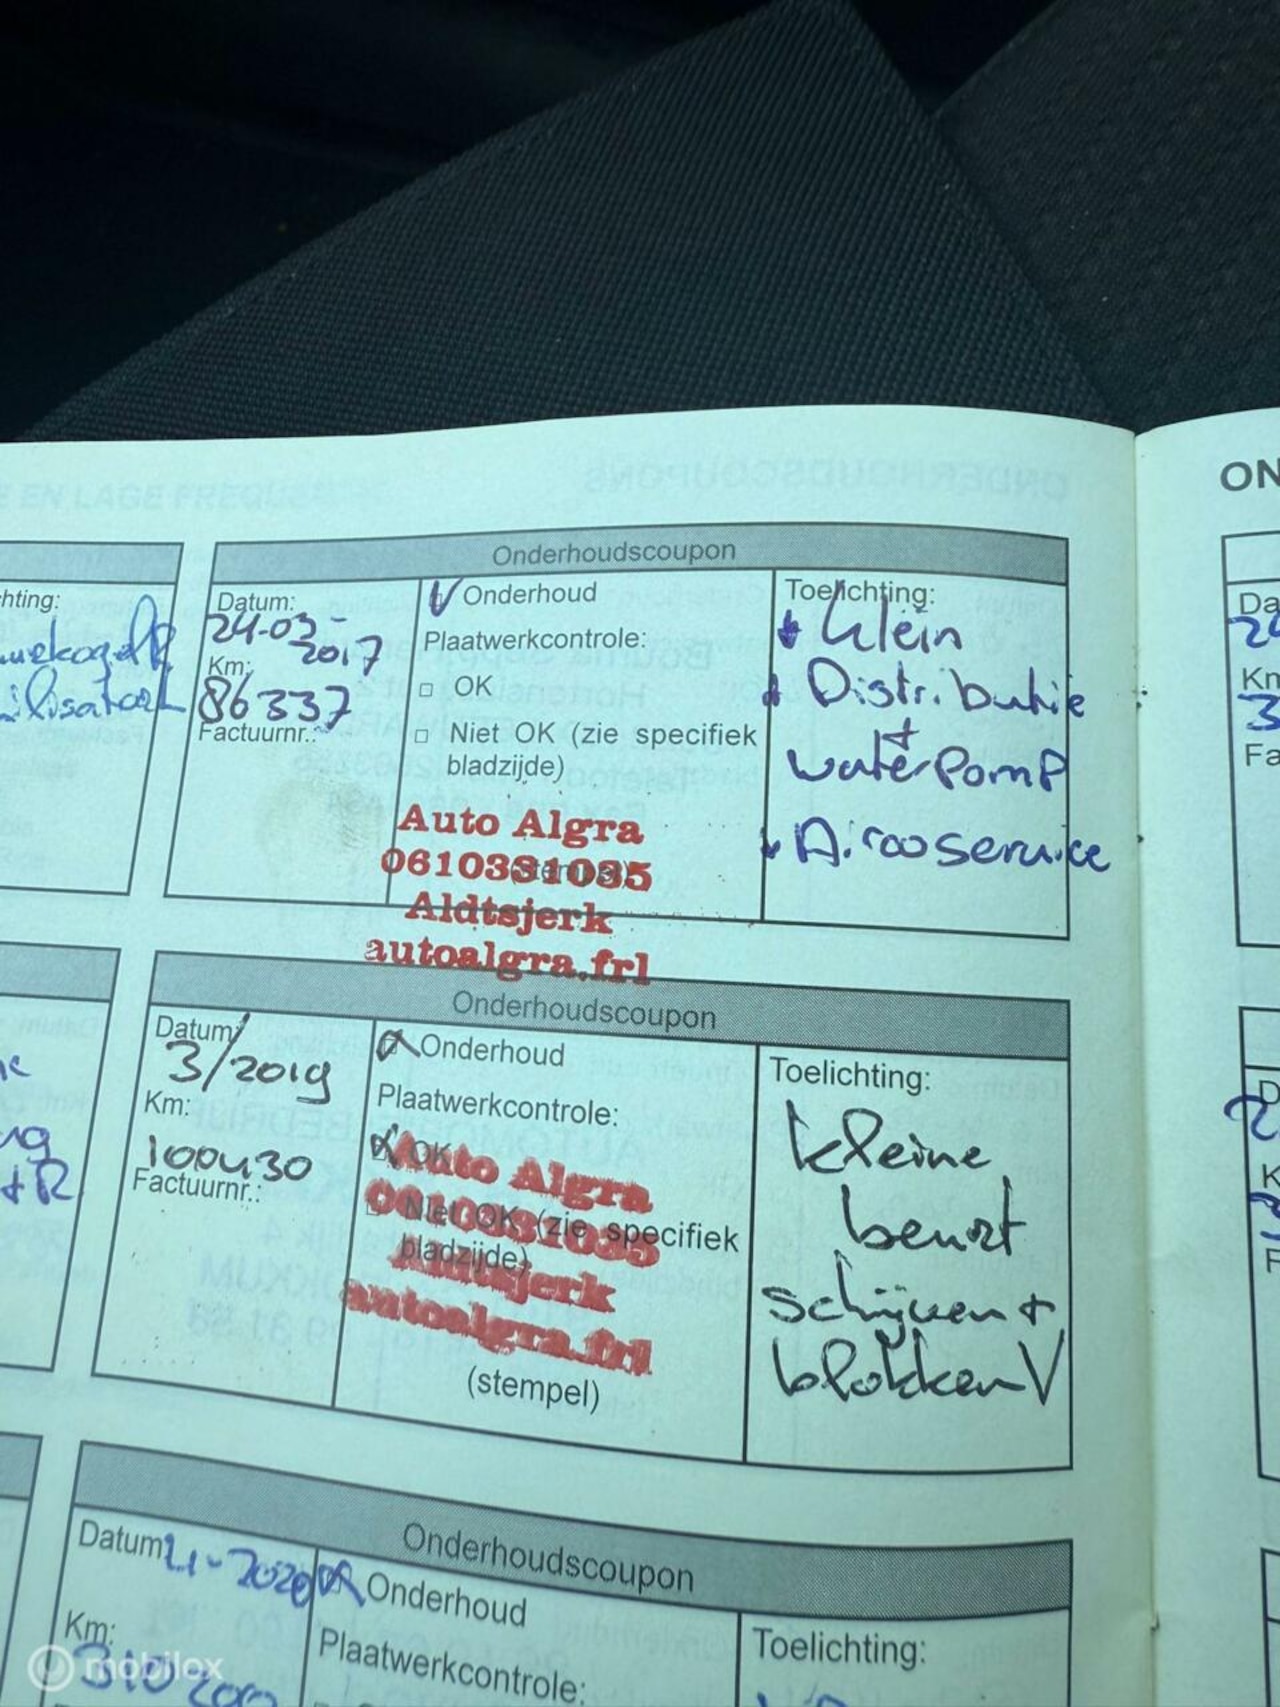 ONDERHOUDSCOUPONS
E EN LAGE FREQUE
ON
Onderhoudscoupon
hting:
Datum:
24-03-
2017
Km:
86337
Factuurnr.:
Onderhoud
Plaatwerkcontrole:
OK
Niet OK (zie specifiek
bladzijde)
(stempel)
Auto Algra
0610331035
Aldtsjerk
autoalgra.frl
Toelichting:
Klein
Distributie
+
waterpomp
Aircoservice
Da
Km
Fa
Onderhoudscoupon
Datum:
3/2019
Km:
100430
Factuurnr.:
Onderhoud
Plaatwerkcontrole:
OK
Niet OK (zie specifiek
bladzijde)
Auto Algra
0610331035
Aldtsjerk
autoalgra.frl
(stempel)
Toelichting:
kleine
beurt
schijven +
blokken V
D
K
F
Onderhoudscoupon
Datum
Onderhoud
Km:
Plaatwerkcontrole:
Toelichting:
mobilox